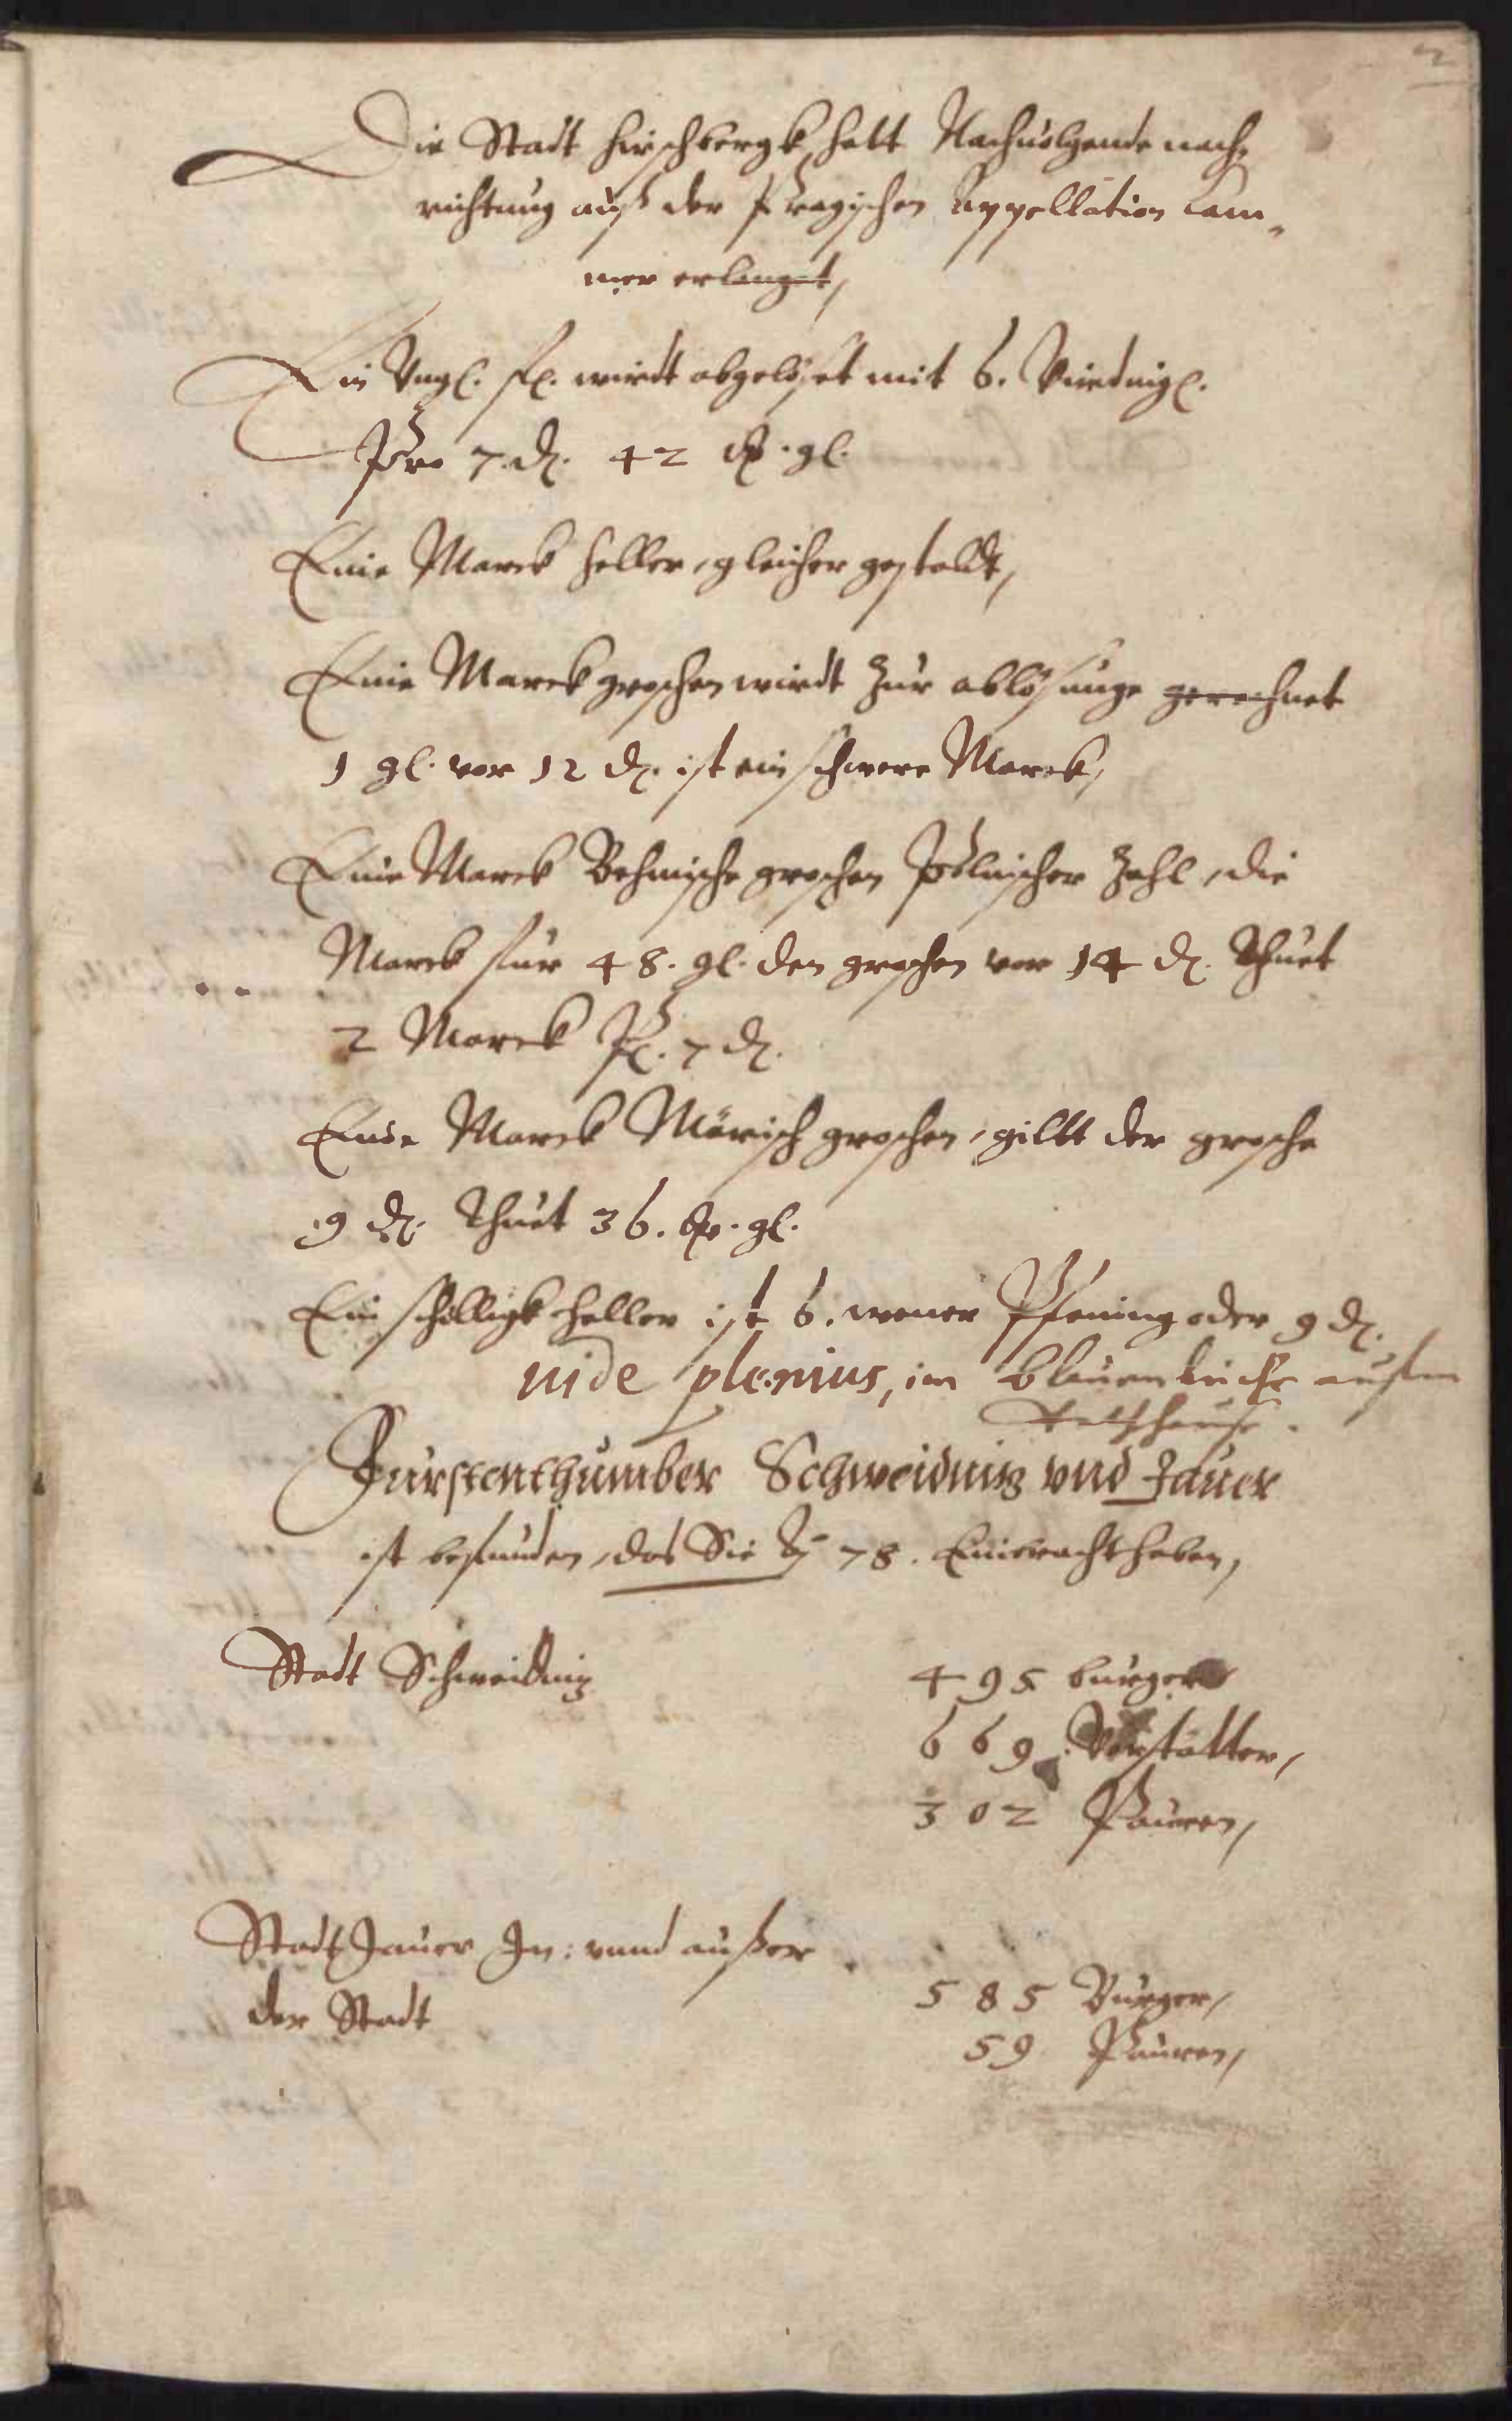 2
Die Stadt Hirschbergk, hatt Nachuolgende nach,
richtung auß der Pragischen Appellation Cam,,
mer erlanget,
Ein Vngl. fl. wirdt abgelöset mit 6.
Pro 7. d. 42 gl.
Eine Marck heller, gleicher gestaldt,
Eine Marck groschen wirdt zur ablösunge gerechnet
1 gl. vor 12 d. ist ein schwere Marck,
Eine Marck Behmische groschen Polnischer Zahl, die
Marck fur 48. gl. den groschen vor 14 d. Thuet
2 Marck 7 d.
Eine Marck Märisch groschen, giltt der grosche
9 d. Thuet 36. gl.
Ein schilligk heller ist 6. Pfening oder 9 d.
uide plenius, im blauen buche aufm
Rathhause.
Furstenthumber Schweidnitz vnd Jauer
ist befunden, das Sie 78. haben,
Stadt Schweidnitz
495 burger
669. Vorstätter,
302 Pauren,
Stadt Jauer In: vnnd außer
der Stadt
585 Burger,
59 Pauren,